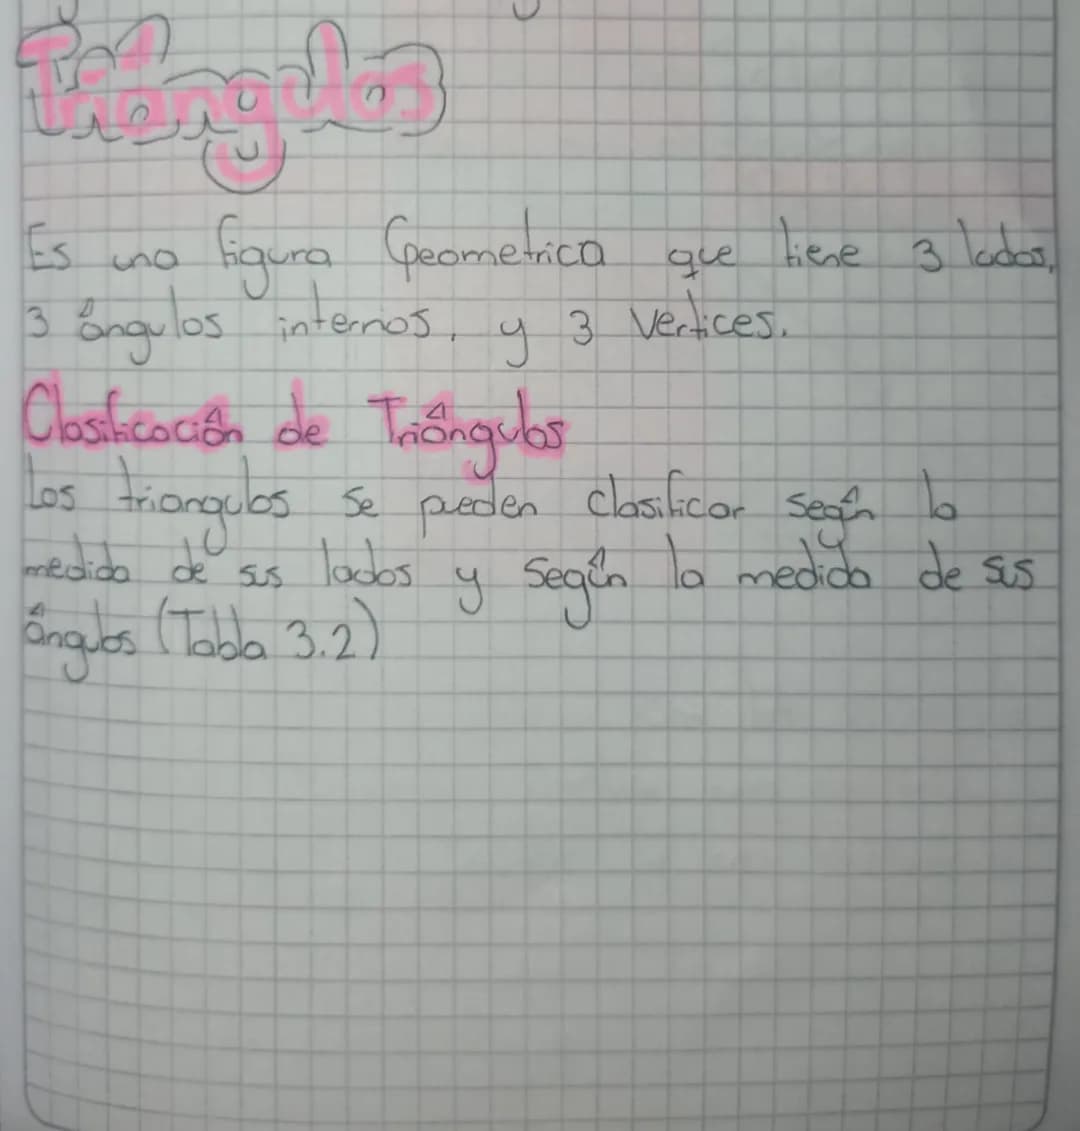 Triángulos
Es una figura Geometrica que tiene 3 lados,
3 ángulos internos, y 3 Vertices.
Clasificación de Triángulos
Los triangulos se pueden clasificar según la
medida de sus lados y según la medida de sus
ángulos (Tabla 3.2)